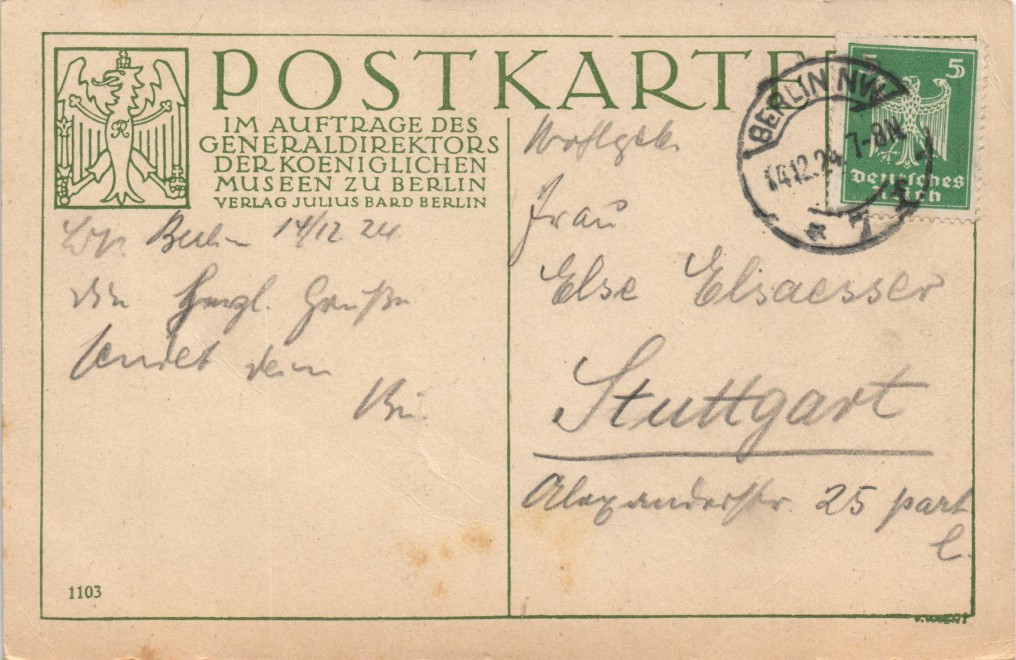 POSTKARTE
IM AUFTRAGE DES
GENERALDIREKTORS
DER KOENIGLICHEN
MUSEEN ZU BERLIN
VERLAG JULIUS BARD BERLIN
5 5
Deutsches
Reich
BERLIN NW
14.12.24. 7-8N
* 7
Berlin 14/12 24.
Herzl. Grüße
sendet dein
Frau
Else Elsaesser
Stuttgart
Alexanderstr. 25 part
l.
1103